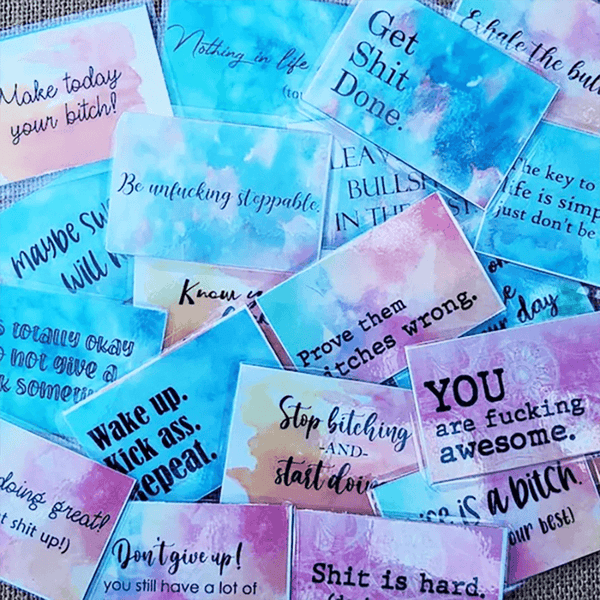 Make today
your bitch!
Nothing in life
Get
Shit
Done.
Exhale the
Be unfucking stoppable.
BULLSH
IN THE
The key to
life is simp
just don't be
maybe
will
Know
Prove them
bitches wrong.
day
totally okay
not give a
Wake up.
Kick ass.
Repeat.
Stop bitching
-AND-
start doin
YOU
are fucking
awesome.
is a bitch.
your best)
doing great!
shit up!)
Don't give up!
you still have a lot of
Shit is hard.